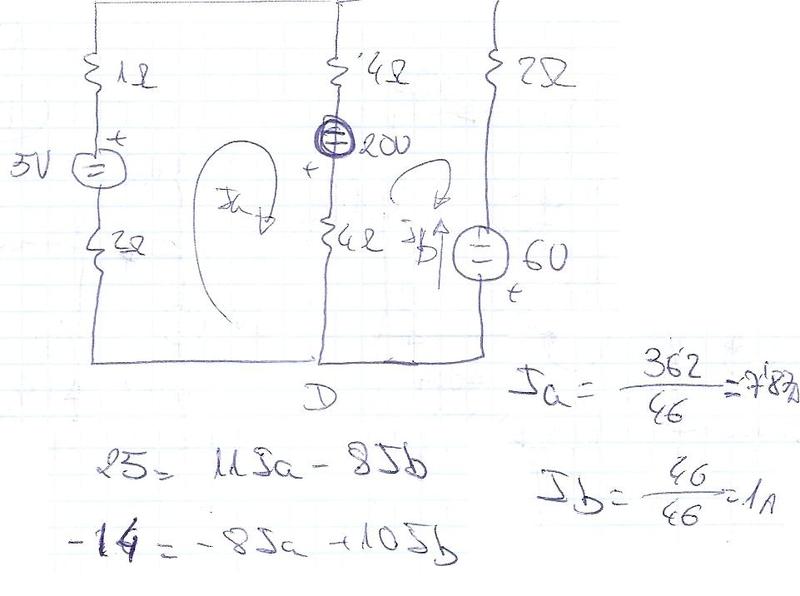 1Ω 4Ω 2Ω
+
5V = = 20V
+
Ia
2Ω 4Ω Ib = 6V
+
D
Ia = 362/46 = 7'87A
25 = 11Ia - 8Ib
Ib = 46/46 = 1A
-14 = -8Ia + 10Ib